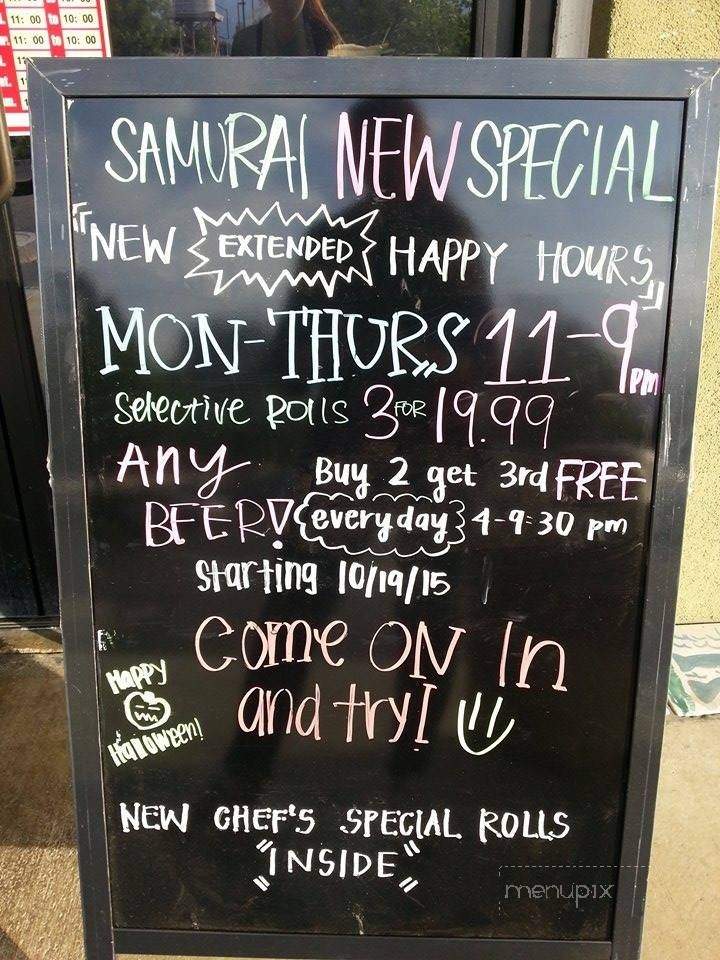 11:00 to 10:00
11:00 to 10:00
SAMURAI NEW SPECIAL
"NEW EXTENDED HAPPY HOURS"
MON-THURS 11-9pm
Selective Rolls 3 FOR 19.99
Any Buy 2 get 3rd FREE
BEER! everyday 4-9:30 pm
Starting 10/19/15
Come ON In
and try!
Happy
Halloween!
NEW CHEF'S SPECIAL ROLLS
"INSIDE"
menupix